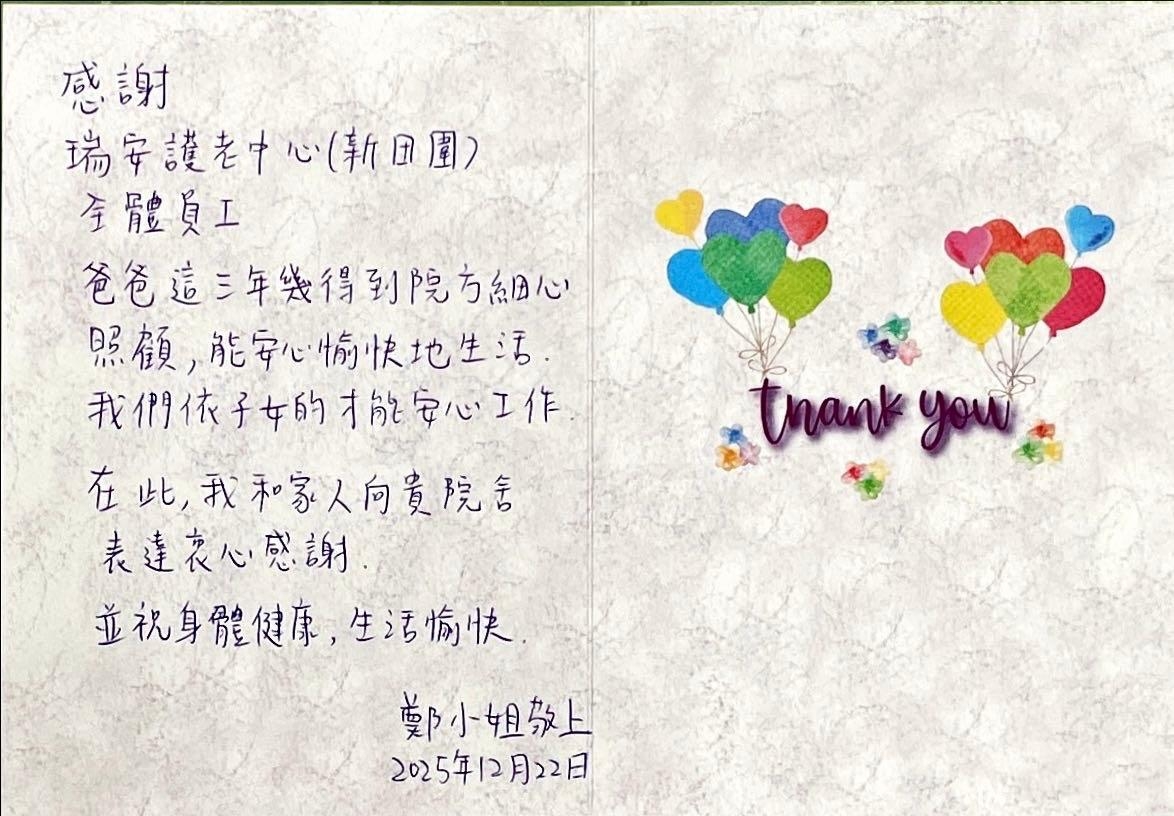 感謝
瑞安護老中心(新田圍)
全體員工
爸爸這三年幾得到院方細心
照顧,能安心愉快地生活.
我們依子女的才能安心工作.
在此,我和家人向貴院舍
表達衷心感謝.
並祝身體健康,生活愉快.
鄭小姐敬上
2025年12月22日
thank you